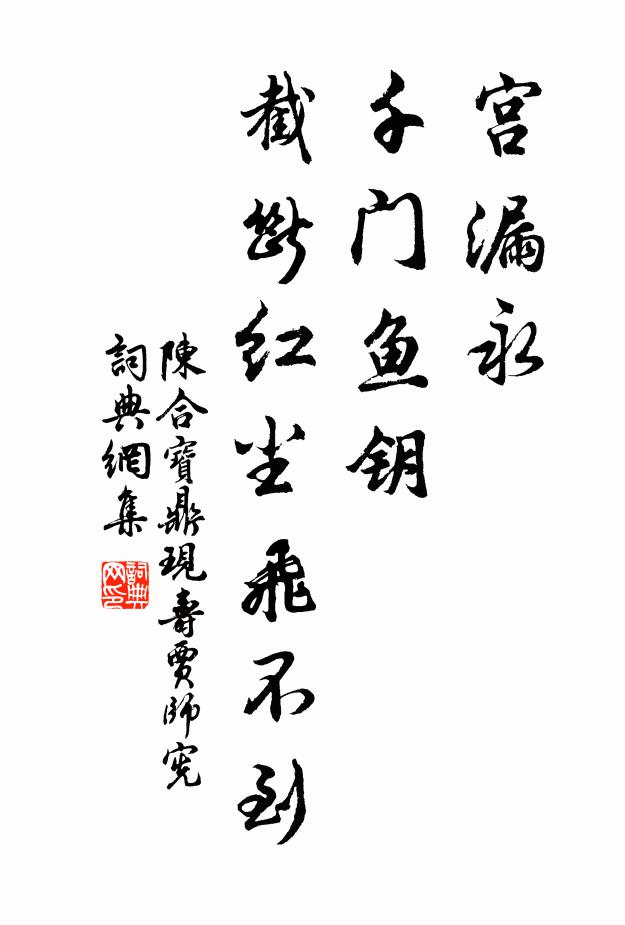 宫漏永
千门鱼钥
截斷红尘飛不到
陳合寶鼎現壽賈師宪
詞典網集
詞典网印